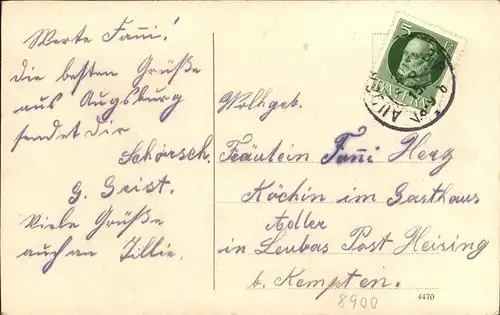 Werte Fanni!
die besten Grüße
aus Augsburg
sendet dir
Schorsch.
G. Geist.
Viele Grüße
auch an Tillie.
Wolhgeb.
Fräulein Fanni Herz
Köchin im Gasthaus
Adler
in Leubas Post Heising
b. Kempten.
8900
4470